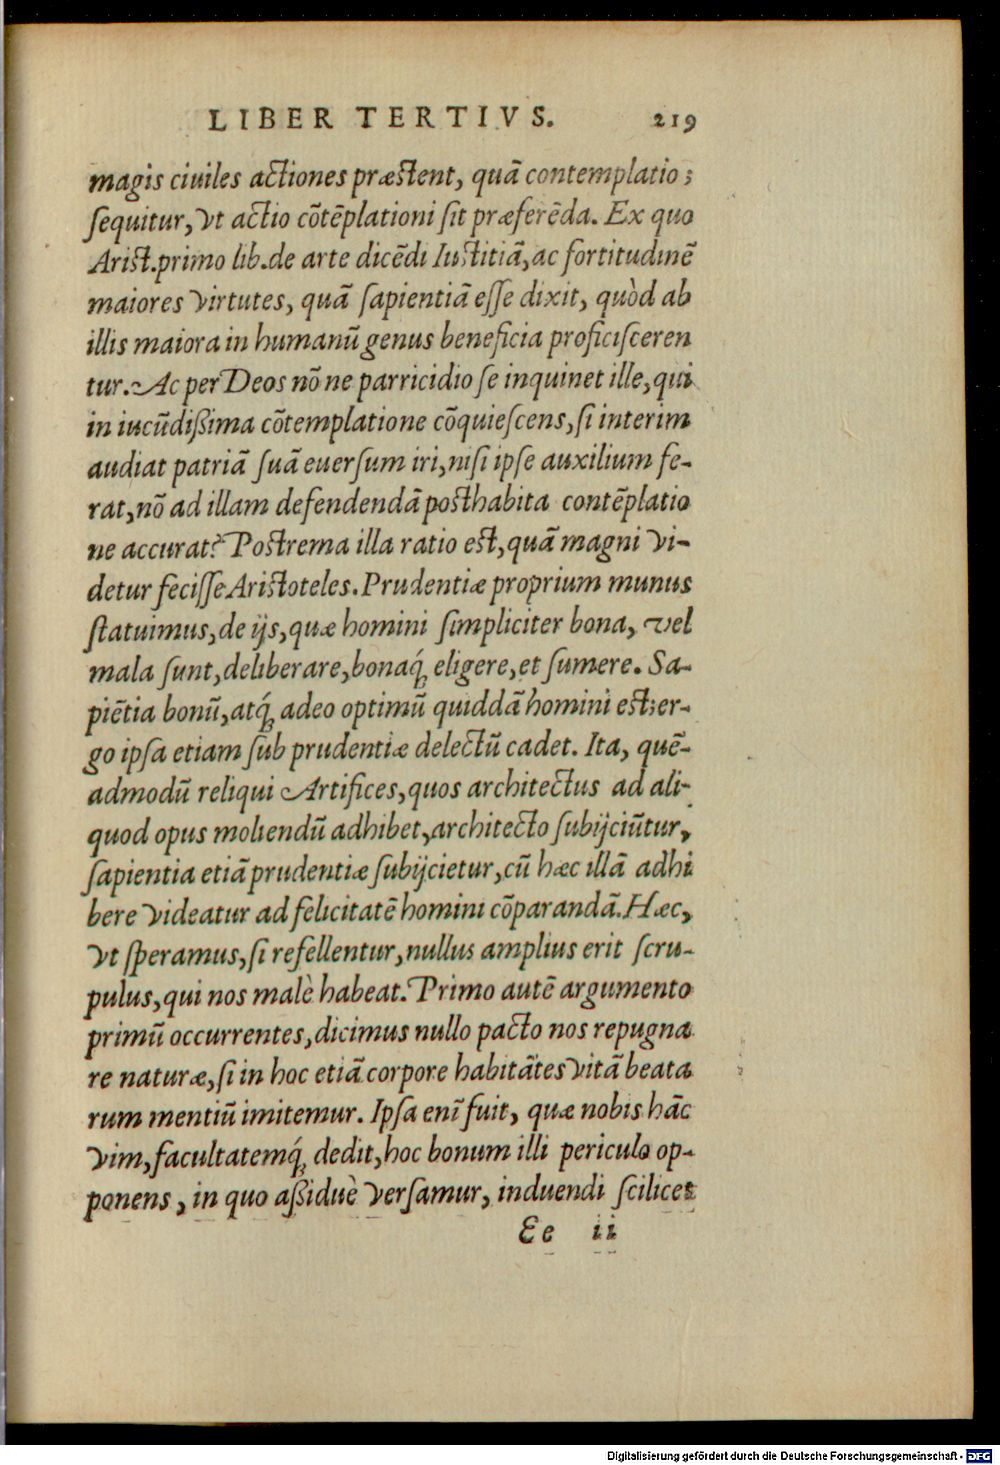 LIBER TERTIVS. 219
magis ciuiles actiones præstent, quã contemplatio;
ſequitur, vt actio cõtẽplationi ſit præferẽda. Ex quo
Arist. primo lib. de arte dicẽdi Iustitiã, ac fortitudinẽ
maiores virtutes, quã ſapientiã eſſe dixit, quòd ab
illis maiora in humanũ genus beneficia proficiſceren
tur. Ac per Deos nõne parricidio ſe inquinet ille, qui
in iucũdißima cõtemplatione cõquieſcens, ſi interim
audiat patriã ſuã euerſum iri, niſi ipſe auxilium fe-
rat, nõ ad illam defendendã posthabita contẽplatio
ne accurat? Postrema illa ratio est, quã magni vi-
detur feciſſe Aristoteles. Prudentiæ proprium munus
ſtatuimus, de ijs, quæ homini ſimpliciter bona, vel
mala ſunt, deliberare, bonaq́; eligere, et ſumere. Sa-
piẽtia bonũ, atq́; adeo optimũ quiddã homini est; er-
go ipſa etiam ſub prudentiæ delectũ cadet. Ita, quẽ-
admodũ reliqui Artifices, quos architectus ad ali-
quod opus moliendũ adhibet, architecto ſubijciũtur,
ſapientia etiã prudentiæ ſubijcietur, cũ hæc illã adhi
bere videatur ad felicitatẽ homini cõparandã. Hæc,
vt ſperamus, ſi refellentur, nullus amplius erit ſcru-
pulus, qui nos malè habeat. Primo autẽ argumento
primũ occurrentes, dicimus nullo pacto nos repugna
re naturæ, ſi in hoc etiã corpore habitãtes vitã beata
rum mentiũ imitemur. Ipſa enĩ fuit, quæ nobis hãc
vim, facultatemq́; dedit, hoc bonum illi periculo op-
ponens, in quo aßiduè verſamur, induendi ſcilicet
Ee ii
Digitalisierung gefördert durch die Deutsche Forschungsgemeinschaft - DFG